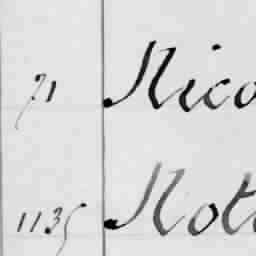 71 Nico
1135 Not